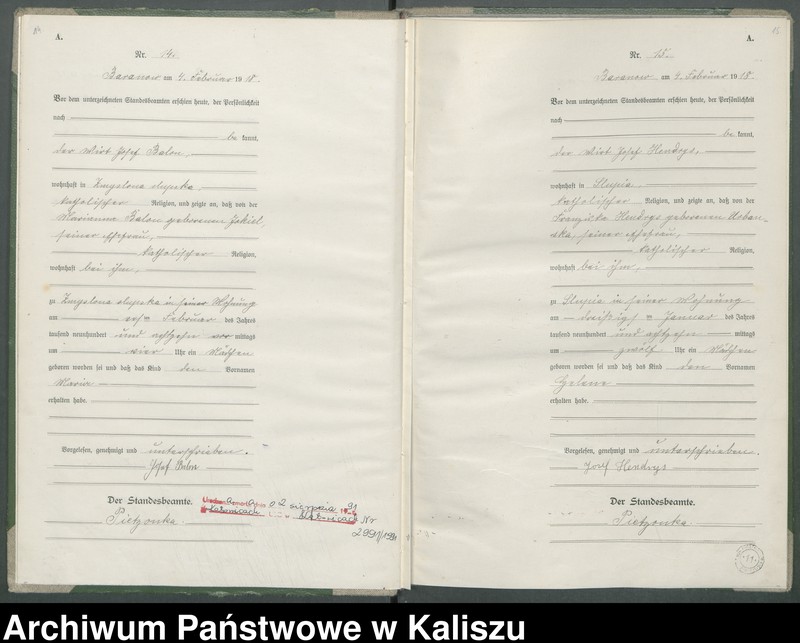 A.
Nr. 14.
Baranow am 4. Februar 1918.
Vor dem unterzeichneten Standesbeamten erschien heute, der Persönlichkeit
nach
be kannt,
der Wirt Josef Balon,
wohnhaft in Zmyslona słupska,
katholischer Religion, und zeigte an, daß von der
Marianna Balon geborenen Jokiel,
seiner Ehefrau,
katholischer Religion,
wohnhaft bei ihm,
zu Zmyslona słupska in seiner Wohnung
am Februar des Jahres
tausend neunhundert und achtzehn vor mittags
um vier Uhr ein Mädchen
geboren worden sei und daß das Kind den Vornamen
Maria
erhalten habe.
Vorgelesen, genehmigt und unterschrieben.
Josef Balon
Der Standesbeamte.
Pietzonka
02 sierpnia 91
Katowicach Nr
2991/1991
A.
Nr. 15.
Baranow am 4. Februar 1918.
Vor dem unterzeichneten Standesbeamten erschien heute, der Persönlichkeit
nach
be kannt,
der Wirt Josef Hendrys,
wohnhaft in Slupia,
katholischer Religion, und zeigte an, daß von der
Franziska Hendrys geborenen Urban-
ska, seiner Ehefrau,
katholischer Religion,
wohnhaft bei ihm,
zu Slupia in seiner Wohnung
am dreißigsten Januar des Jahres
tausend neunhundert und achtzehn mittags
um zwölf Uhr ein Mädchen
geboren worden sei und daß das Kind den Vornamen
Helene
erhalten habe.
Vorgelesen, genehmigt und unterschrieben.
Josef Hendrys
Der Standesbeamte.
Pietzonka
Archiwum Państwowe w Kaliszu